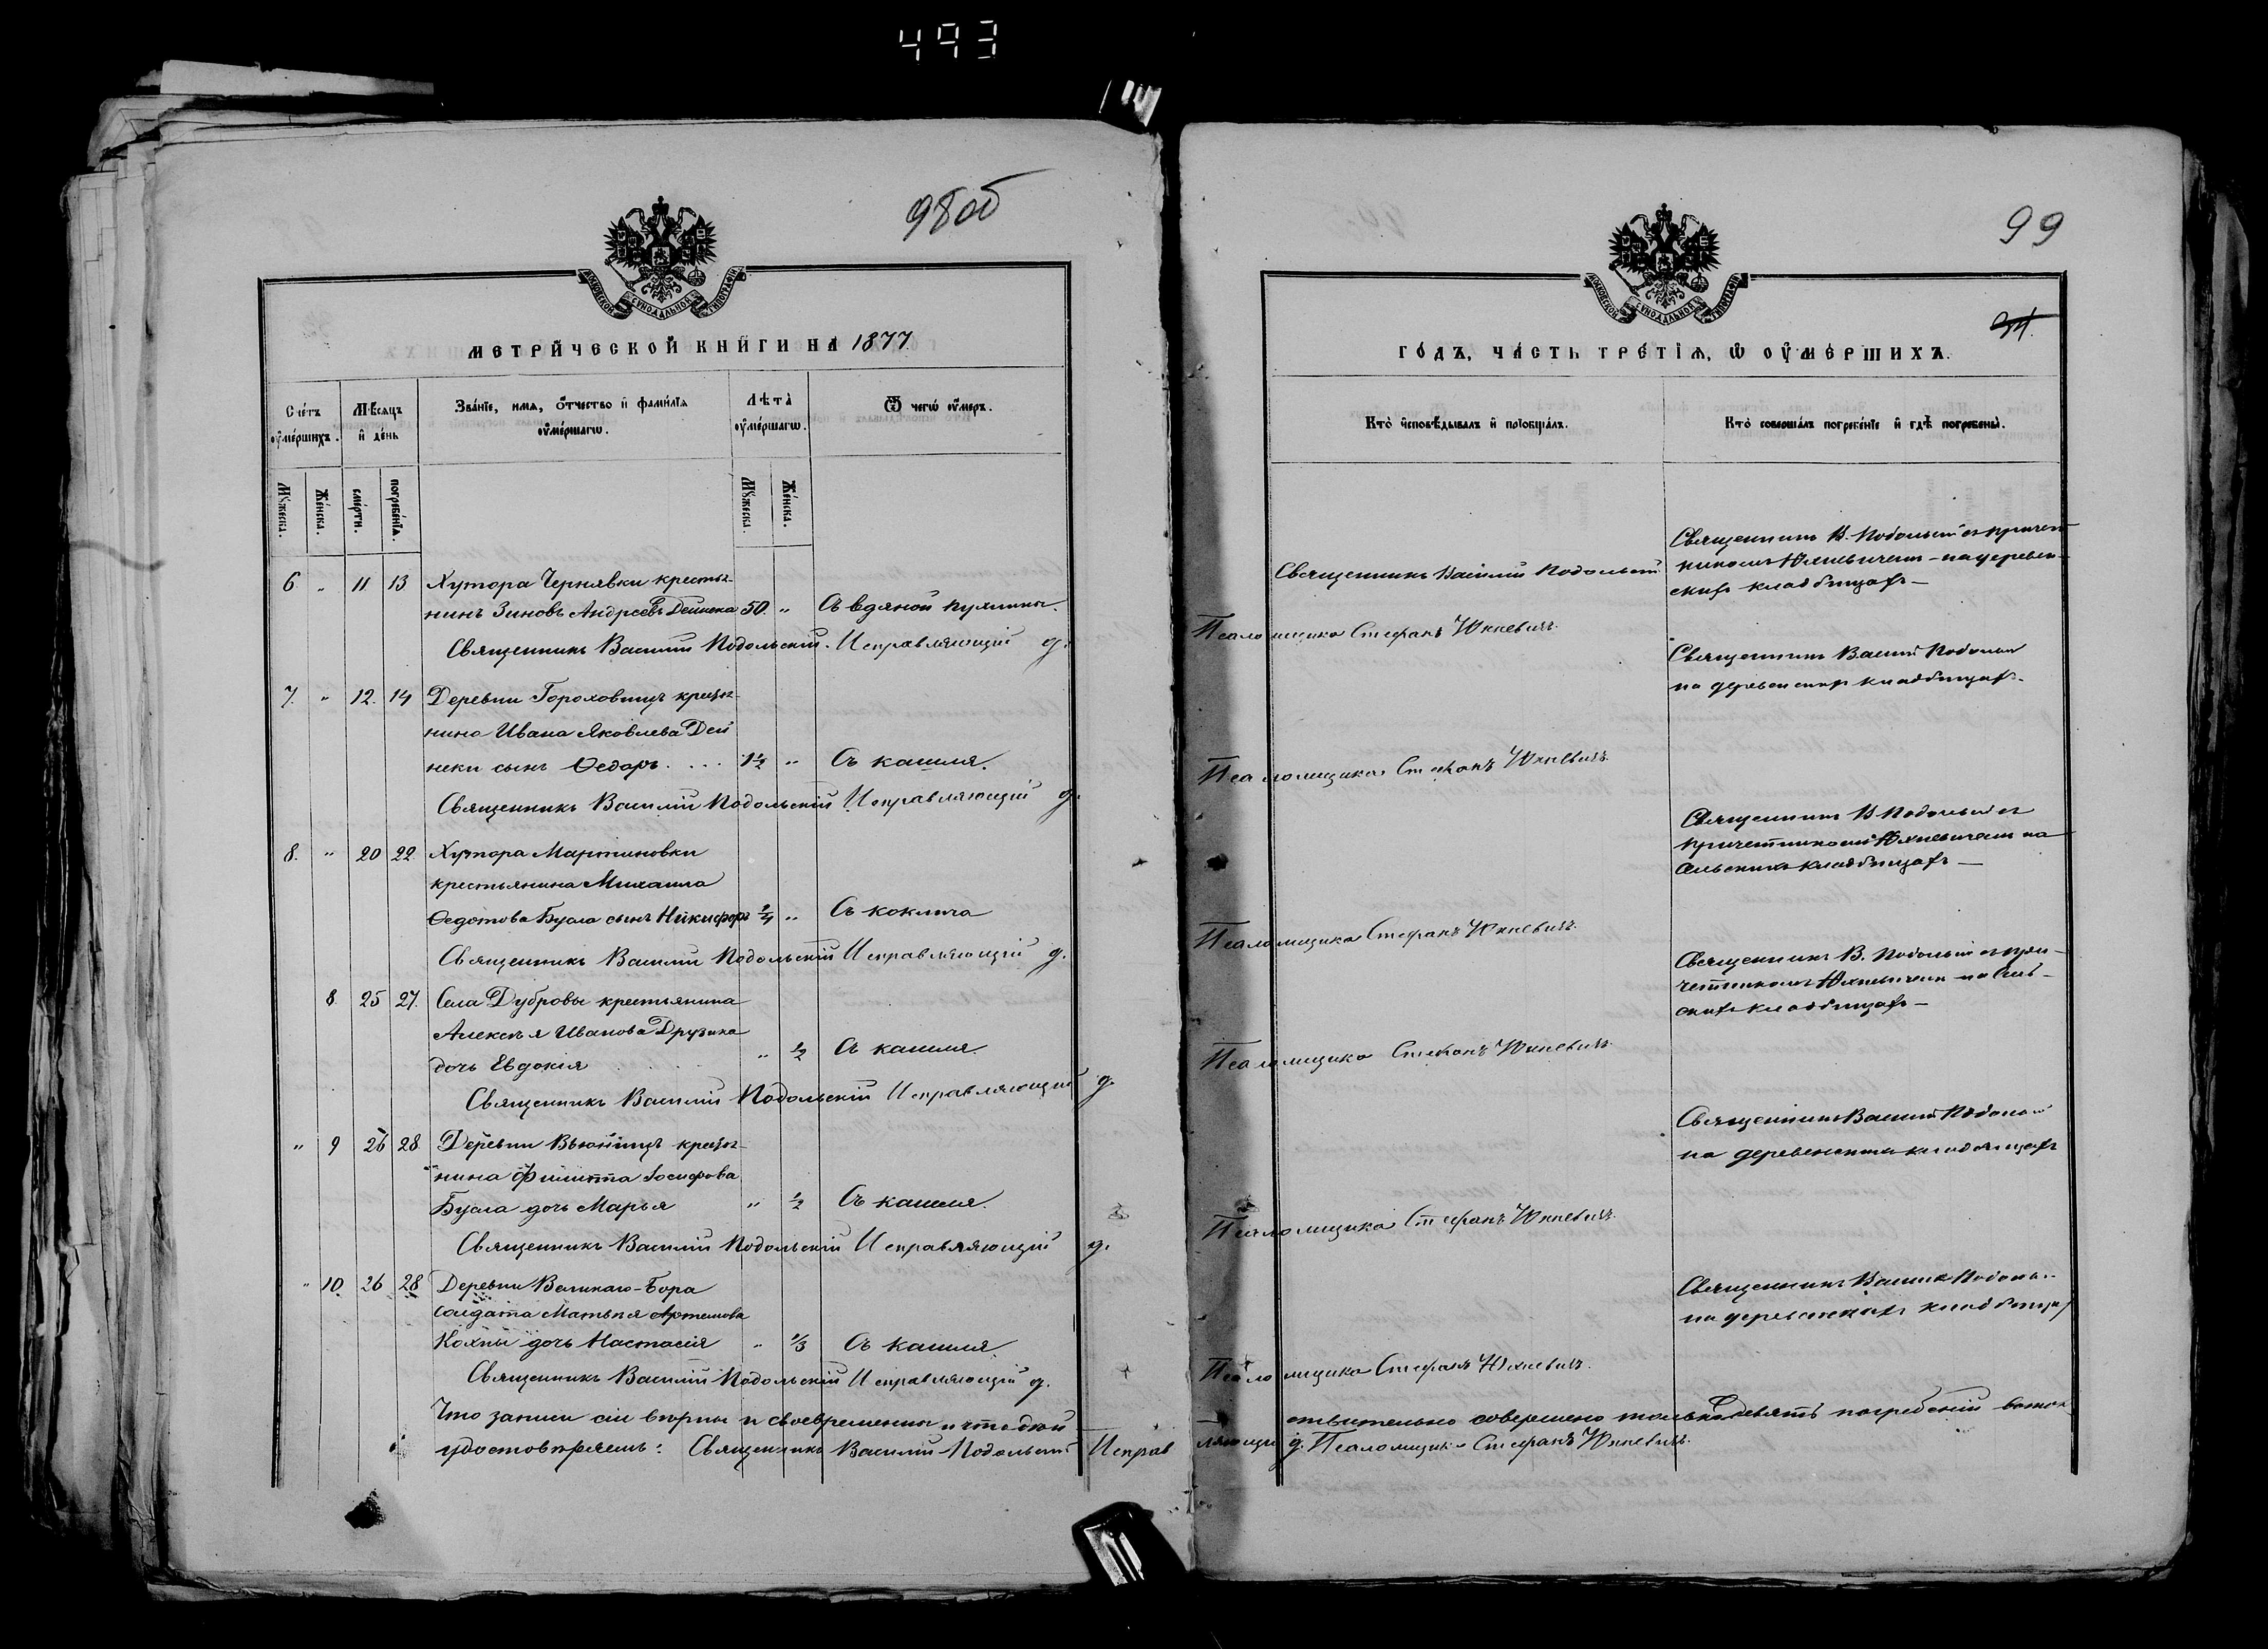 493
98об
МОСКОВСКОЙ СѴНОДАЛЬНОЙ ТИПОГРАФІИ
МЕТРИ́ЧЕСКОЙ КНИ́ГИ НА 1877
Сче́тъ ᲂу҆ме́ршихъ.
Мѣ́сяцъ и҆ де́нь
Зва́нїе, имѧ, ѻ҆́тчество и҆ фами́лїѧ ᲂу҆ме́ршагѡ.
Лѣ́та̀ ᲂу҆ме́ршагѡ.
Ѿ чегѡ̀ ᲂу҆́меръ.
Мꙋ́жеска.
Же́нска.
сме́рти.
погребе́нїѧ.
Мꙋ́жеска
Же́нска.
6 " 11 13 Хутора Чернявки крестья-
нинъ Зиновъ Андреевъ Дейнека 50. " Съ водяной пухлины.
Священникъ Василій Подольскій. Исправляющій д.
7. " 12. 14 Деревни Гороховищъ кресть-
нина Ивана Яковлева Дей
неки сынъ Ѳедоръ . . . . 1½ " Съ кашля.
Священникъ Василій Подольскій Исправляющій д.
8. " 20 22 Хутора Мартиновки
крестьянина Михаила
Ѳедотова Буяла сынъ Никифоръ ¾ " Съ коклюша
Священникъ Василій Подольскій Исправляющій д.
8. 25 27. Села Дубровы крестьянина
Алексѣя Иванова Друзика
дочь Евдокія " ½ Съ кашля.
Священникъ Василій Подольскій Исправляющій д.
" 9 26 28 Деревни Вьюнищъ кресть-
нина Филиппа Іосифова
Буяла дочь Марья " ½ Съ кашля.
Священникъ Василій Подольскій Исправляющій д.
" 10. 26 28 Деревни Великаго-Бора
солдата Матвѣя Артемова
Кохны дочь Настасія " ⅓ Съ кашля.
Священникъ Василій Подольскій Исправляющій д.
Что записи сіи вѣрны и своевременны и что дѣй
удостовѣряемъ: Священникъ Василій Подольскій Исправ
99
МОСКОВСКОЙ СѴНОДАЛЬНОЙ ТИПОГРАФІИ
ГО́ДЪ, ЧА́СТЬ ТРЕ́ТЇѦ, Ѡ҆ ОУ҆МЕ́РШИХЪ.
Кто̀ и҆сповѣ́дывалъ и҆ прїобща́лъ.
Кто̀ соверша́лъ погребе́нїе и҆ гдѣ̀ погребены̀.
Священникъ Василій Подольскій
Священникъ В. Подольскій съ причет
никомъ Юхневичемъ на деревен-
скихъ кладбищахъ —
Псаломщика Стефанъ Юхневичъ.
Священникъ Василій Подольск
на деревенскихъ кладбищахъ.
Псаломщика Стефанъ Юхневичъ.
Священникъ В Подольскій съ
причетникомъ Юхневичемъ на
сельскихъ кладбищахъ —
Псаломщика Стефанъ Юхневичъ.
Священникъ В. Подольскій съ при-
четникомъ Юхневичемъ на сель-
скихъ кладбищахъ —
Псаломщика Стефанъ Юхневичъ.
Священникъ Василій Подольскій
на деревенскихъ кладбищахъ
Псаломщика Стефанъ Юхневичъ.
Священникъ Василій Подольс
на деревенскихъ кладбищах
Псаломщика Стефанъ Юхневичъ.
ствительно совершено только девять погребеній въ том
ляющій д. Псаломщика Стефанъ Юхневичъ.